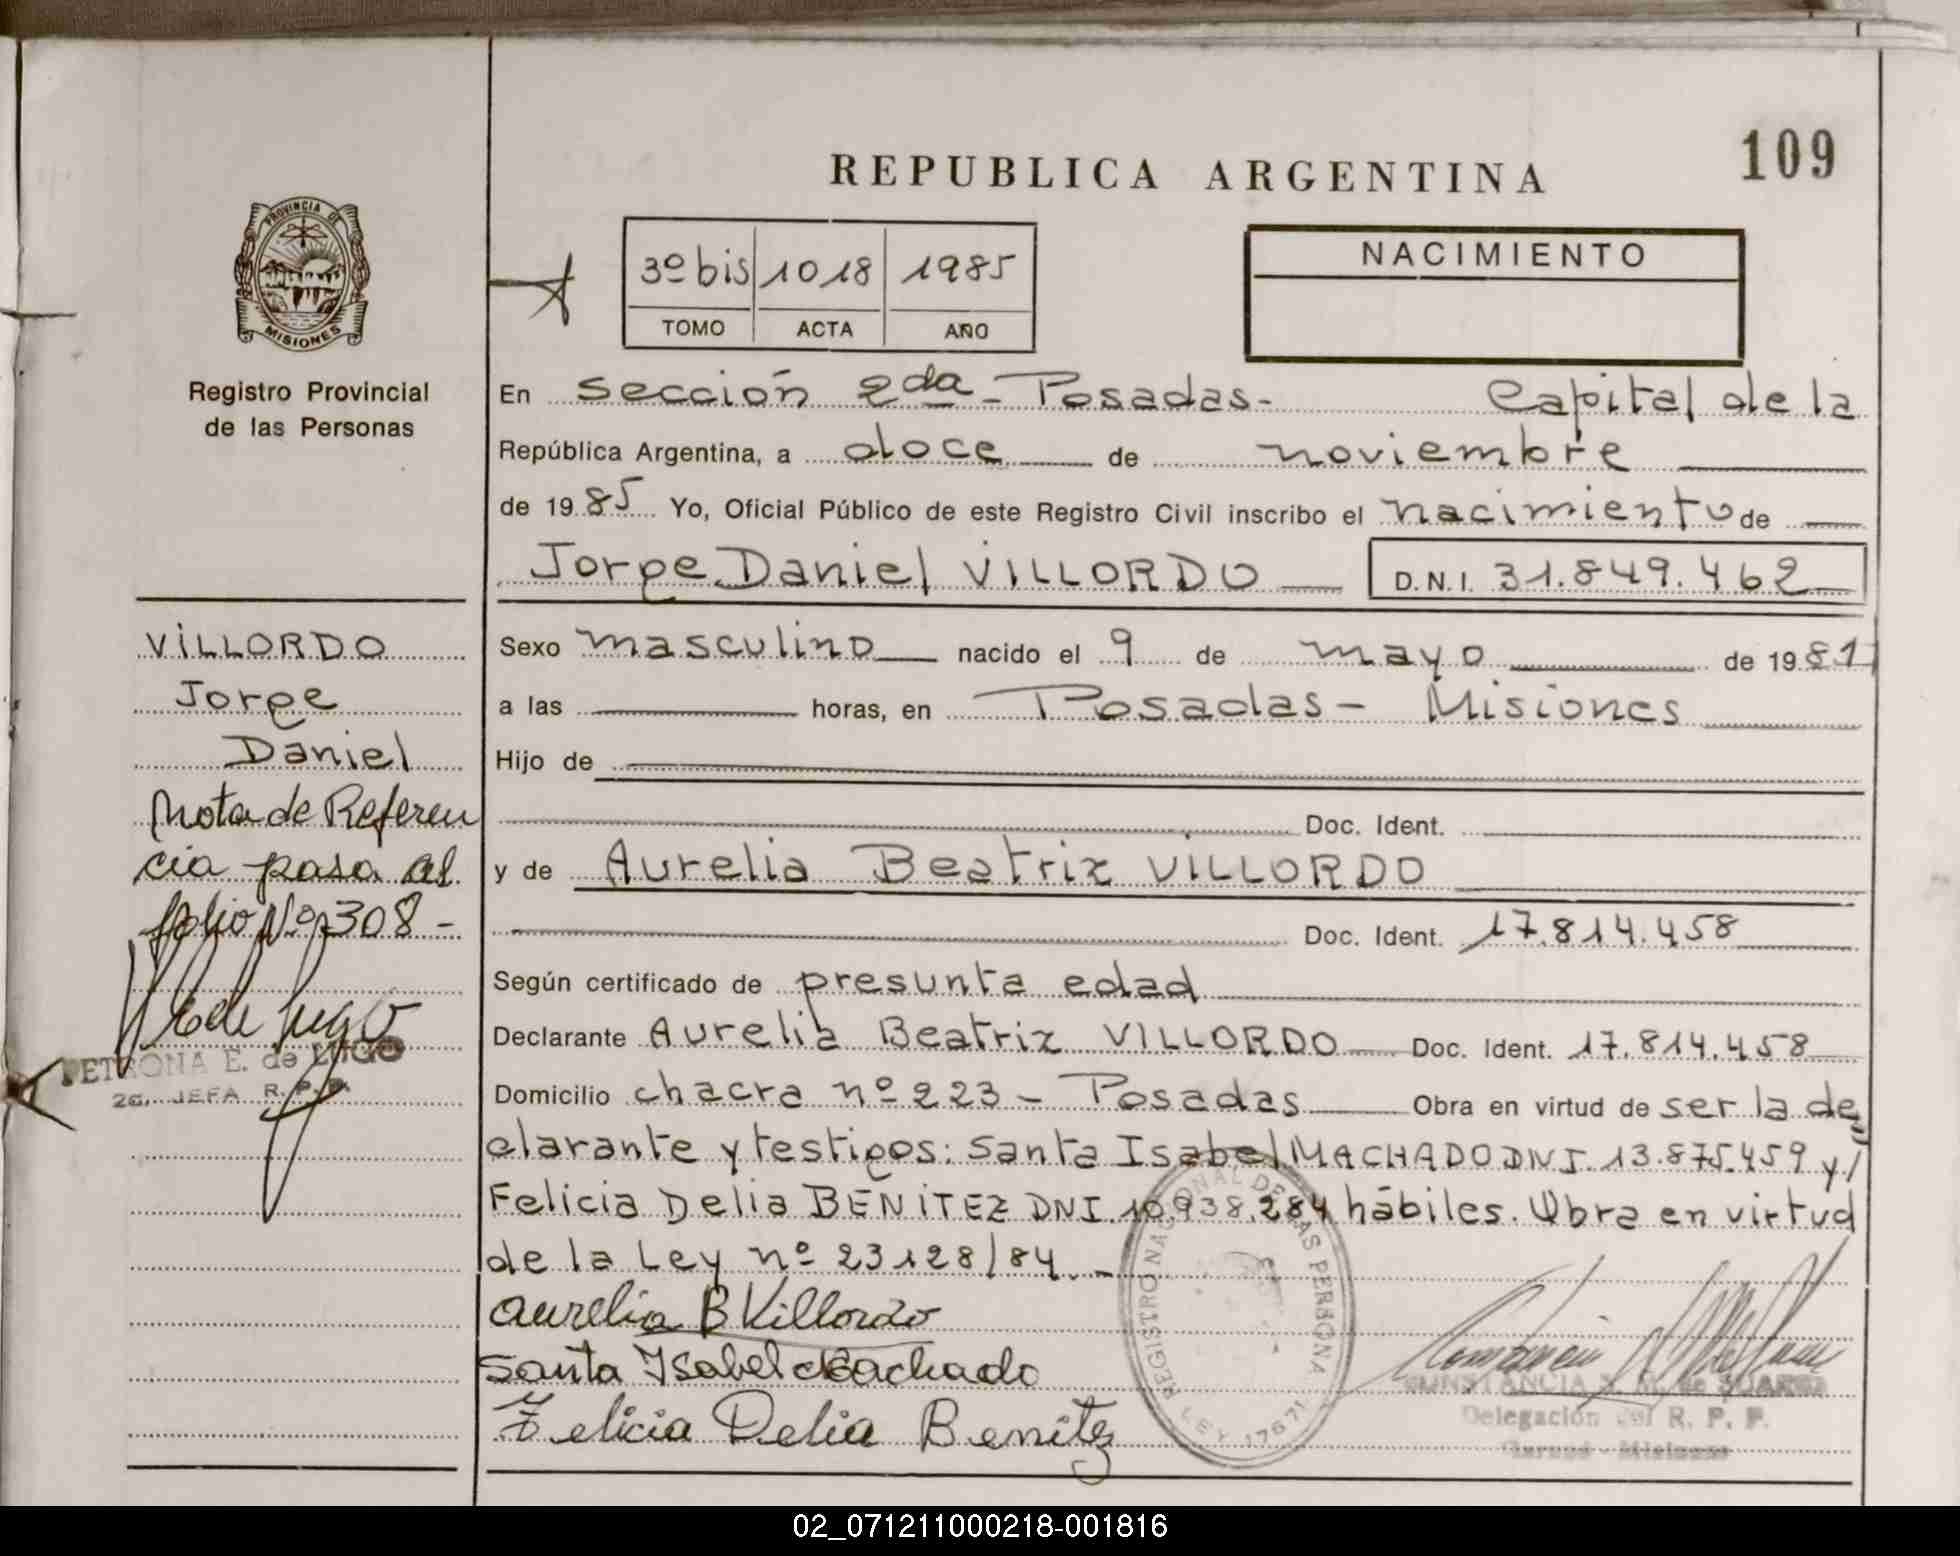 109
REPUBLICA ARGENTINA
PROVINCIA DE
MISIONES
Registro Provincial
de las Personas
3º bis 1018 1985
TOMO ACTA AÑO
NACIMIENTO
En sección 2da - Posadas - Capital de la
República Argentina, a doce de noviembre
de 1985 Yo, Oficial Público de este Registro Civil inscribo el nacimiento de
Jorge Daniel VILLORDO D.N.I. 31.849.462
Sexo masculino nacido el 9 de mayo de 1981
a las horas, en Posadas - Misiones
Hijo de
Doc. Ident.
y de Aurelia Beatriz VILLORDO
Doc. Ident. 17.814.458
Según certificado de presunta edad
Declarante Aurelia Beatriz VILLORDO Doc. Ident. 17.814.458
Domicilio chacra nº 223 - Posadas Obra en virtud de ser la de
clarante y testigos: Santa Isabel MACHADO DNI. 13.875.459 y/
Felicia Delia BENITEZ DNI. 10.938.284 hábiles. Obra en virtud
de la Ley nº 23128/84. -
Aurelia B Villordo
Santa Ysabel Machado
Felicia Delia Benitez
REGISTRO NACIONAL DE LAS PERSONA
LEY 17671
CONSTANCIA de SUAREZ
Delegación del R. P. P.
Misiones
VILLORDO
Jorge
Daniel
Nota de Referen
cia pasa al
folio Nº 308 -
PETRONA E. de LUGO
JEFA R. P. P.
02_071211000218-001816